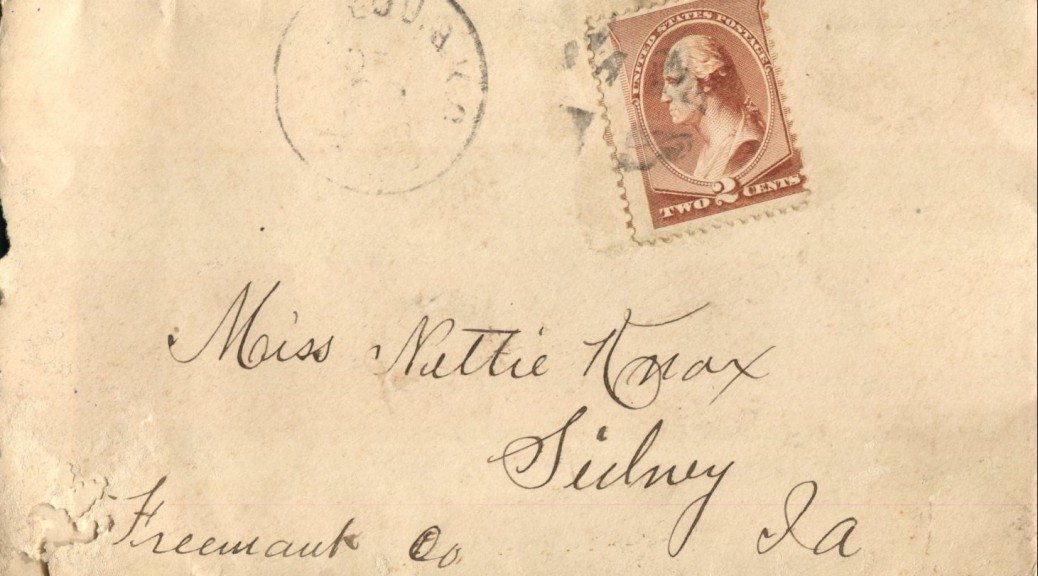 UNITED STATES POSTAGE
TWO 2 CENTS
Miss Nettie Knox
Sidney
Freemank Co. Ia